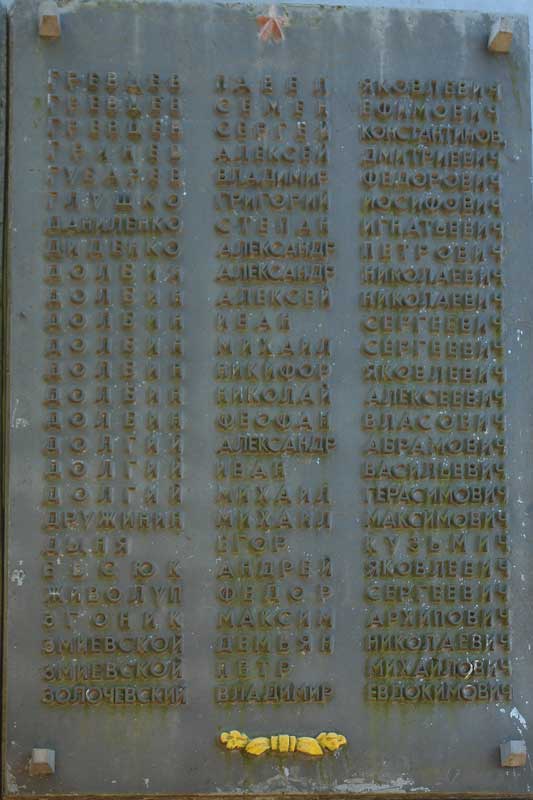 ГРЕВЦЕВ ПАВЕЛ ЯКОВЛЕВИЧ
ГРЕВЦЕВ СЕМЕН ЕФИМОВИЧ
ГРЕВЦЕВ СЕРГЕЙ КОНСТАНТИНОВ.
АЛЕКСЕЙ ДМИТРИЕВИЧ
ГУБАРЕВ ВЛАДИМИР ФЕДОРОВИЧ
ГЛУШКО ГРИГОРИЙ ИОСИФОВИЧ
ДАНИЛЕНКО СТЕПАН ИГНАТЬЕВИЧ
ДИДЕНКО АЛЕКСАНДР ПЕТРОВИЧ
ДОЛБИН АЛЕКСАНДР НИКОЛАЕВИЧ
ДОЛБИН АЛЕКСЕЙ НИКОЛАЕВИЧ
ДОЛБИН ИВАН СЕРГЕЕВИЧ
ДОЛБИН МИХАИЛ СЕРГЕЕВИЧ
ДОЛБИН НИКИФОР ЯКОВЛЕВИЧ
ДОЛБИН НИКОЛАЙ АЛЕКСЕЕВИЧ
ДОЛБИН ФЕОФАН ВЛАСОВИЧ
ДОЛГИЙ АЛЕКСАНДР АБРАМОВИЧ
ДОЛГИЙ ИВАН ВАСИЛЬЕВИЧ
ДОЛГИЙ МИХАИЛ ГЕРАСИМОВИЧ
ДРУЖИНИН МИХАИЛ МАКСИМОВИЧ
ДЫНЯ ЕГОР КУЗЬМИЧ
ЕВСЮК АНДРЕЙ ЯКОВЛЕВИЧ
ЖИВОЛУП ФЕДОР СЕРГЕЕВИЧ
ЗГОНИК МАКСИМ АРХИПОВИЧ
ЗМИЕВСКОЙ ДЕМЬЯН НИКОЛАЕВИЧ
ЗМИЕВСКОЙ ПЕТР МИХАЙЛОВИЧ
ЗОЛОЧЕВСКИЙ ВЛАДИМИР ЕВДОКИМОВИЧ